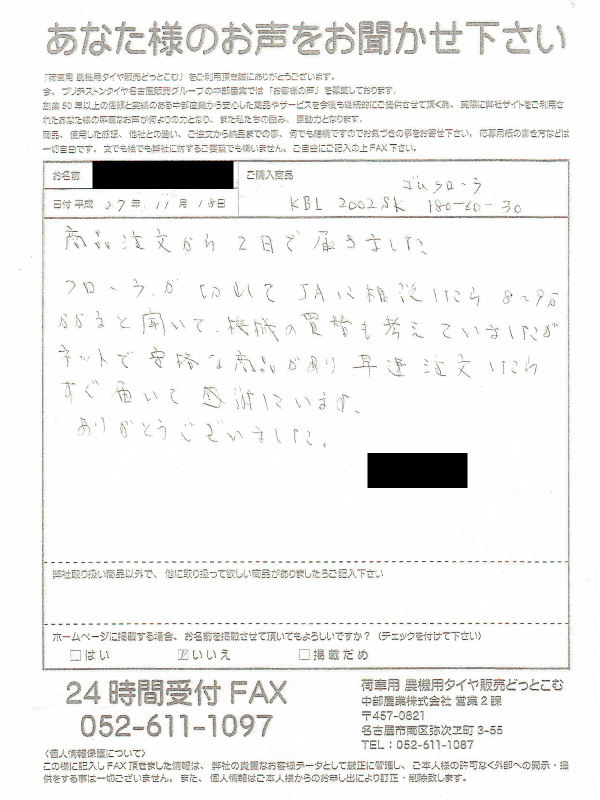 あなた様のお声をお聞かせ下さい
「荷車用 農機用タイヤ販売どっとこむ」をご利用頂き誠にありがとうございます。
今、ブリヂストンタイヤ名古屋販売グループの中部産業では「お客様の声」を募集しております。
創業50年以上の信頼と実績のある中部産業から安心した商品やサービスを今後も継続的にご提供させて頂く為、実際に弊社サイトをご利用さ
れたあなた様の率直なお声が何よりの力となり、また私たちの励み、原動力となります。
商品、使用した感想、他社との違い、ご注文から納品までの事、何でも結構ですのでお気づきの事をお寄せ下さい。応募用紙の書き方などは
一切自由です。文でも絵でも弊社に対するご要望でも構いません。ご自由にご記入の上FAX下さい。
お名前
ご購入商品
ゴムクローラ
日付 平成 27年 11月 18日
KBL 2002SK 180-60-30
商品注文から2日で届きました
クローラが切れてJAに相談したら8〜9万
かかると聞いて、機械の買替も考えていましたが
ネットで安価な商品が有り早速注文したら
すぐ届いて感謝しています。
ありがとうございました。
弊社取り扱い商品以外で、他に取り扱って欲しい商品がありましたらご記入下さい
ホームページに掲載する場合、お名前を掲載させて頂いてもよろしいですか？（チェックを付けて下さい）
□はい ☑いいえ □掲載だめ
24時間受付FAX
052-611-1097
荷車用 農機用タイヤ販売どっとこむ
中部産業株式会社 営業2課
〒457-0821
名古屋市南区弥次ヱ町3-55
TEL：052-611-1087
〈個人情報保護について〉
この様に記入しFAX頂きました情報は、弊社の貴重なお客様データとして厳正に管理し、ご本人様の許可なく外部への開示・提
供をする事は一切ございません。また、個人情報はご本人様からのお申し出により訂正・削除致します。